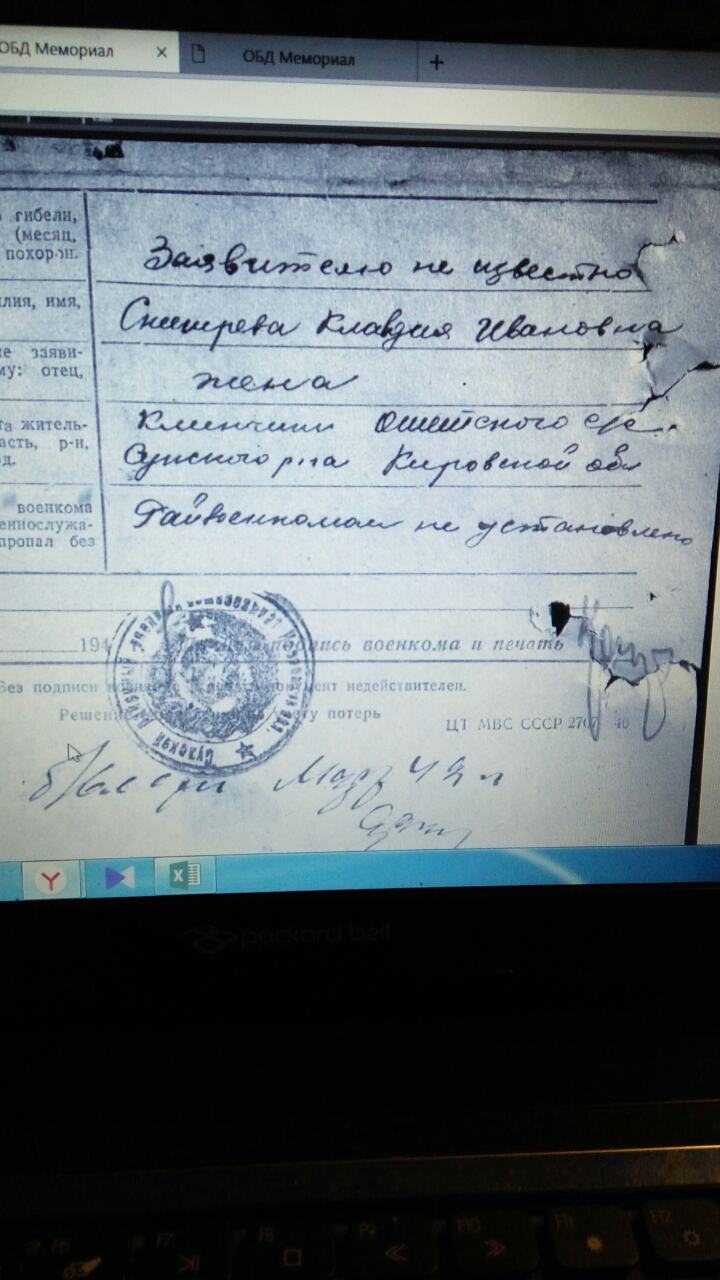 ОБД Мемориал × ОБД Мемориал +
гибели,
(месяц,
похорон.
Заявителю не известно
лия, имя,
Снигирева Клавдия Ивановна
заяви-
му: отец,
жена
та житель-
асть, р-н,
д.
Ошетского с/с.
Сунского р-на Кировской обл
военкома
еннослужа-
пропал без
Райвоенкоматом не установлено
194 подпись военкома и печать
Без подписи документ недействителен.
Решение потерь
ЦТ МВС СССР 46
Сунский районный
packard bell
F6 F7 F8 F9 F10 F11 F12